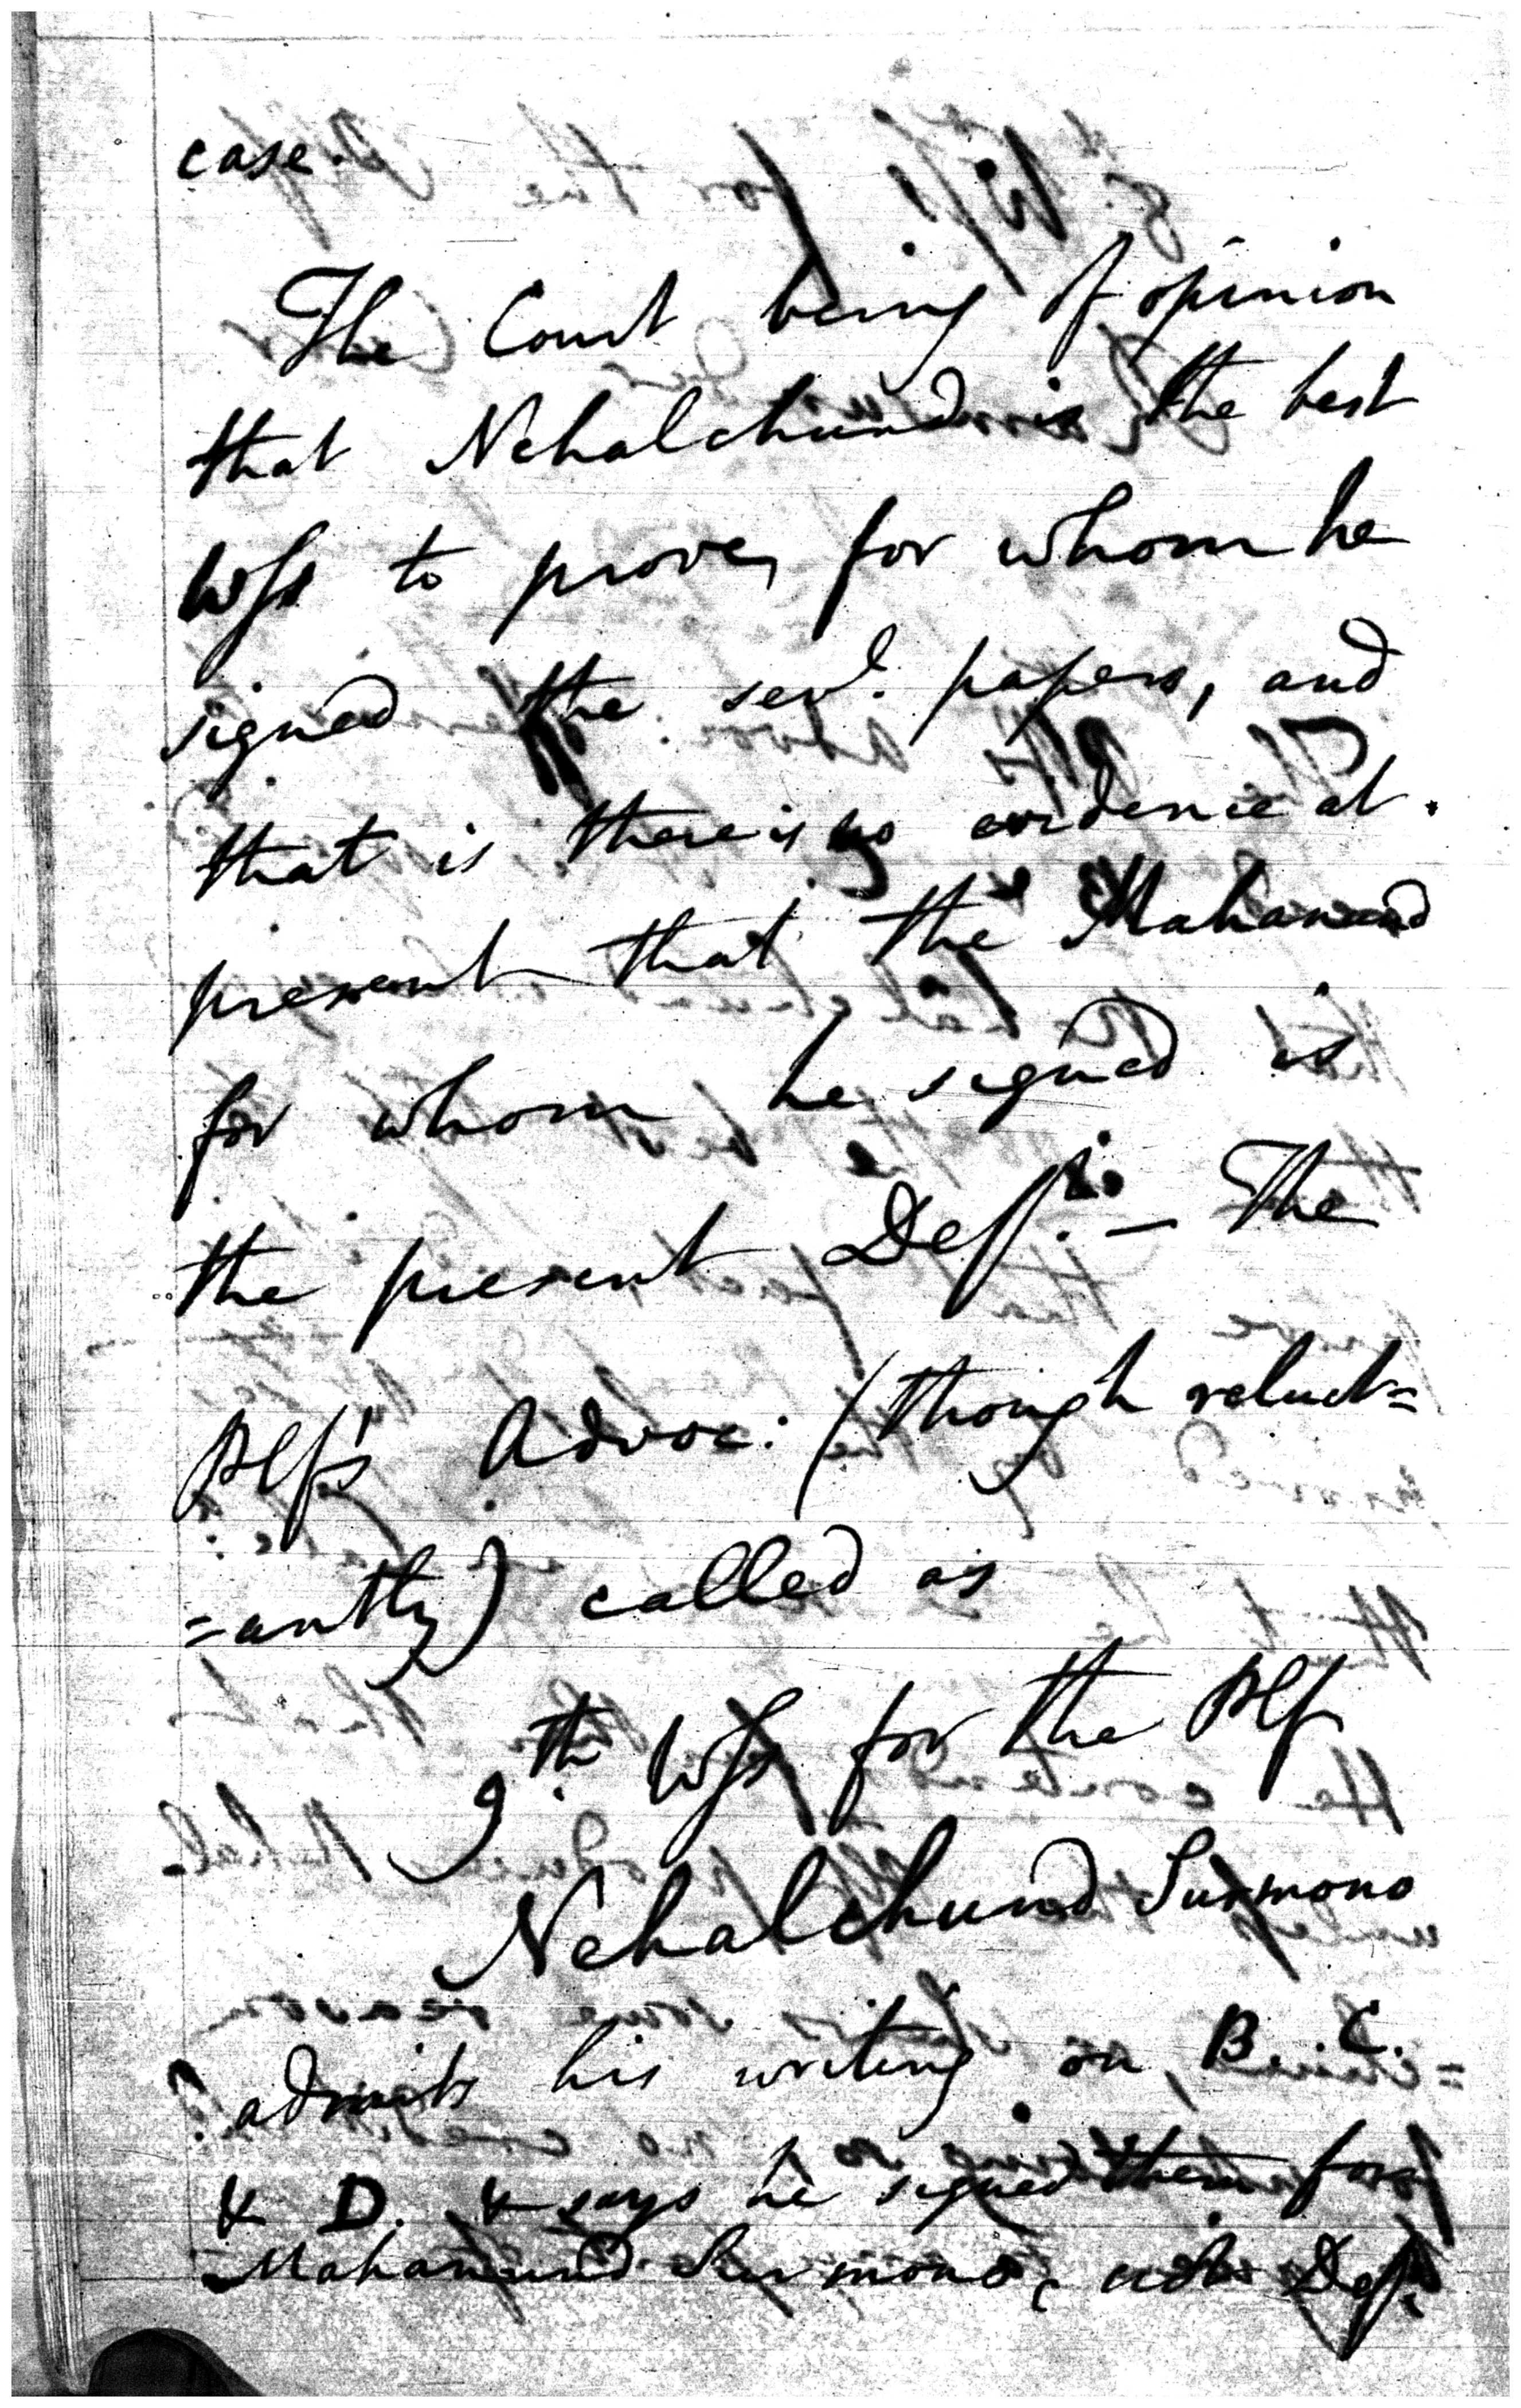 case.
The Court being of opinion
that Nehalchund is the best
Wss to prove, for whom he
signed the sevl. papers, and
that is there is no evidence at
present that the Mahanund
for whom he signed is
the present Deft. – The
Plf's Advoc: (though reluct=
=antly) called as
9th. Wss for the Plf
Nehalchund Surmono
admits his writing on B. C.
& D. & says he signed them for
Mahanund Surmono, Deft.